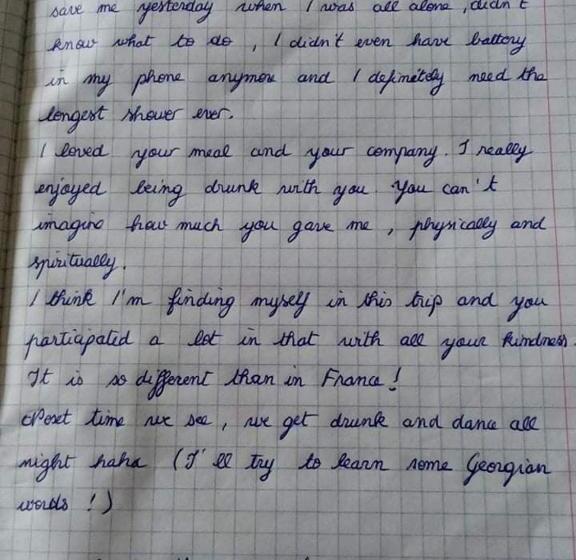 save me yesterday when I was all alone, didn't
know what to do, I didn't even have battery
in my phone anymore and I definitely need the
longest shower ever.
I loved your meal and your company. I really
enjoyed being drunk with you. You can't
imagine how much you gave me, physically and
spiritually.
I think I'm finding myself in this trip and you
participated a lot in that with all your kindness.
It is so different than in France!
Next time we see, we get drunk and dance all
night haha (I'll try to learn some Georgian
words!)